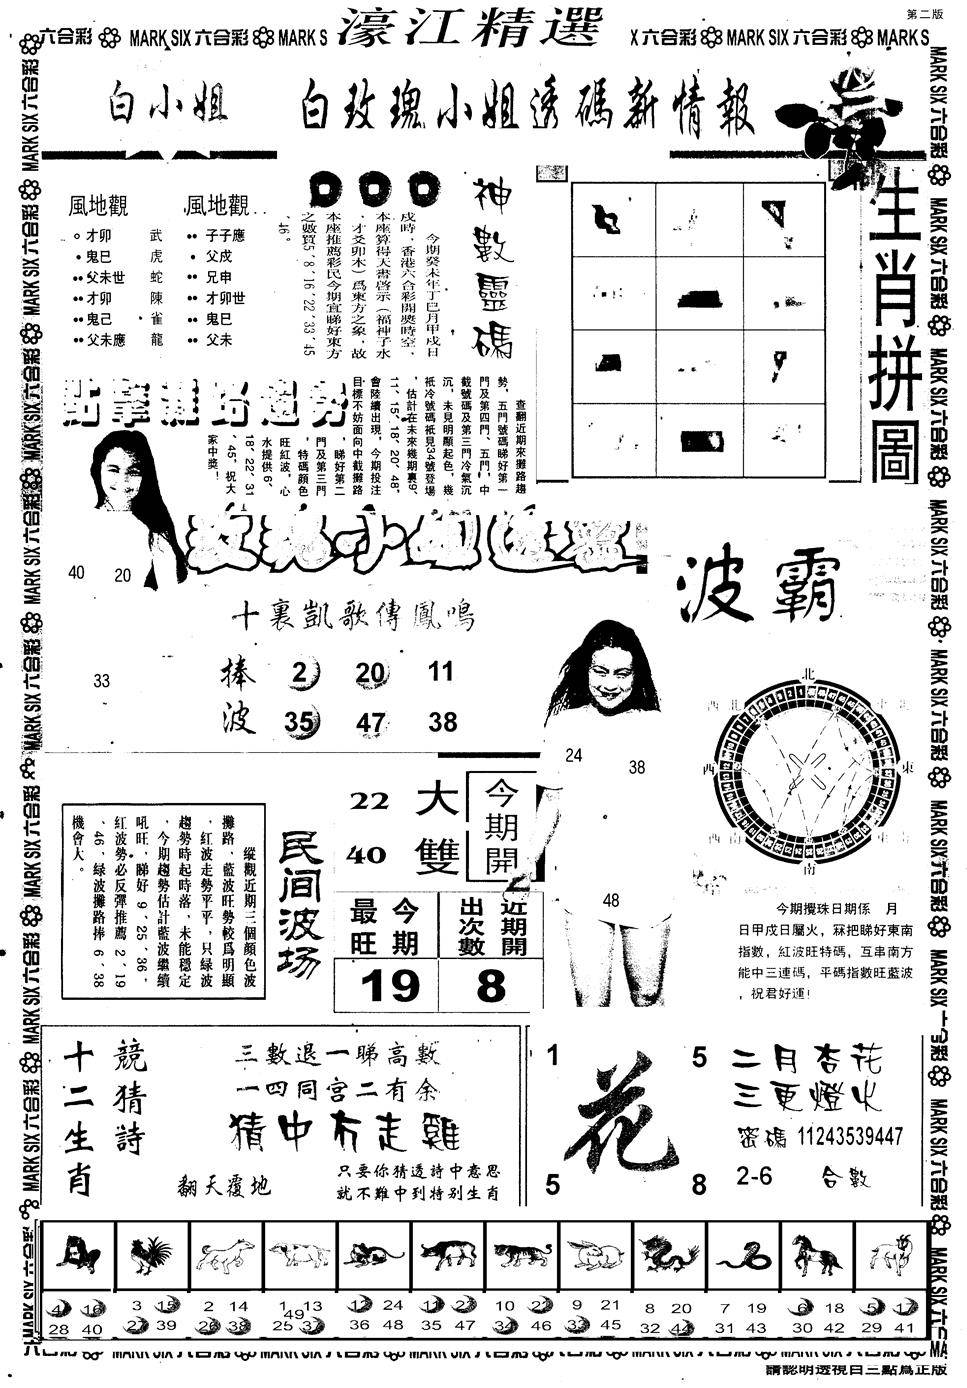 第二版
六合彩 MARK SIX 六合彩 MARK S
濠江精選
X 六合彩 MARK SIX 六合彩 MARK S
白小姐
白玫瑰小姐透碼新情報
風地觀
才卯 武
鬼巳 虎
父未世 蛇
才卯 陳
鬼己 雀
父未應 龍
風地觀
子子應
父戌
兄申
才卯世
鬼巳
父未
神數靈碼
今期癸未年丁巳月甲戌日
戌時，香港六合彩開獎時空，
本座算得天書啓示（福神子水
，才爻卯木）爲東方之象，故
本座推薦彩民今期宜睇好東方
之數買5、8、16、22、33、45
、46。
生肖拼圖
點擊攤路趨勢
查翻近期來攤路趨
勢，五門號碼睇好第一
門及第四門、五門，中
截號碼及第三門冷氣沉
沉，未見明顯起色，幾
衹冷號碼衹見34號登場
，估計在未來幾期裏9、
二、15、18、20、48，
會陸續出現，今期投注
目標不妨面向中截攤路
，睇好第二
門及第三門
，特碼顔色
旺紅波，心
水提供6、
18、22、31
、45，祝大
家中獎！
玫瑰小姐透蛋
40 20
33
十裏凱歌傳鳳鳴
捧波
2 20 11
35 47 38
波霸
24 38
48
北
西北
東北
西
東
西南
東南
南
今期攪珠日期係 月
日甲戌日屬火，冧把睇好東南
指數，紅波旺特碼，互串南方
能中三連碼，平碼指數旺藍波
，祝君好運!
民间波场
縱觀近期三個顔色波
攤路，藍波旺勢較爲明顯
，紅波走勢平平，只绿波
趨勢時起時落，未能穩定
，今期趨勢估計藍波繼續
吼旺，睇好9、25、36，
紅波勢必反彈推薦2、19
、46，绿波攤路捧6、38
機會大。
22 大
40 雙
今期開
今期最旺
19
近期開出次數
8
十二生肖
競猜詩
三數退一睇高數
一四同宫二有余
猜中冇走雞
翻天覆地
只要你猜透詩中意思
就不難中到特别生肖
1 5
花
5 8
二月杏花
三更燈火
密碼 11243539447
2-6 合數
4 16 28 40
3 15 27 39
2 14 26 38
1 13 49 25 37
12 24 36 48
11 23 35 47
10 22 34 46
9 21 33 45
8 20 32 44
7 19 31 43
6 18 30 42
5 17 29 41
請認明透視白三點爲正版